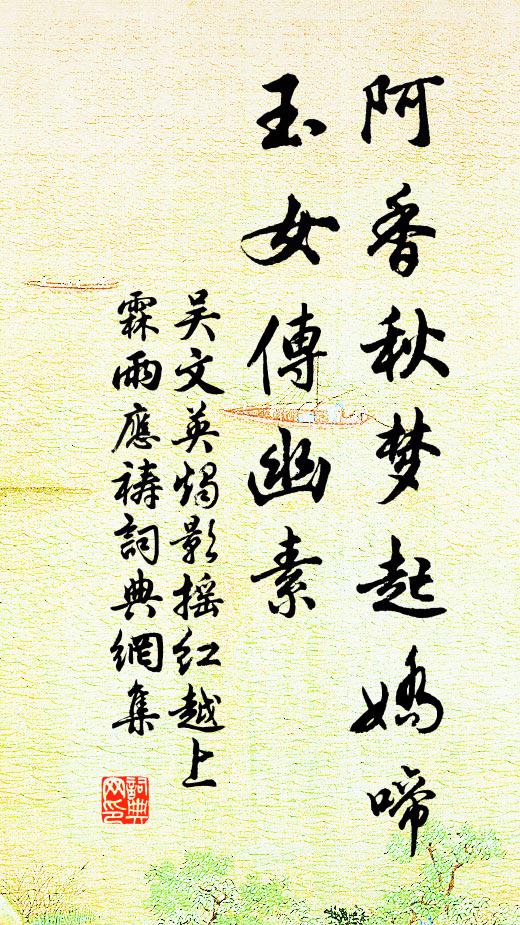 阿香秋梦起娇啼
玉女傳幽素
吴文英燭影摇红越上
霖雨應祷詞典網集
詞典网印